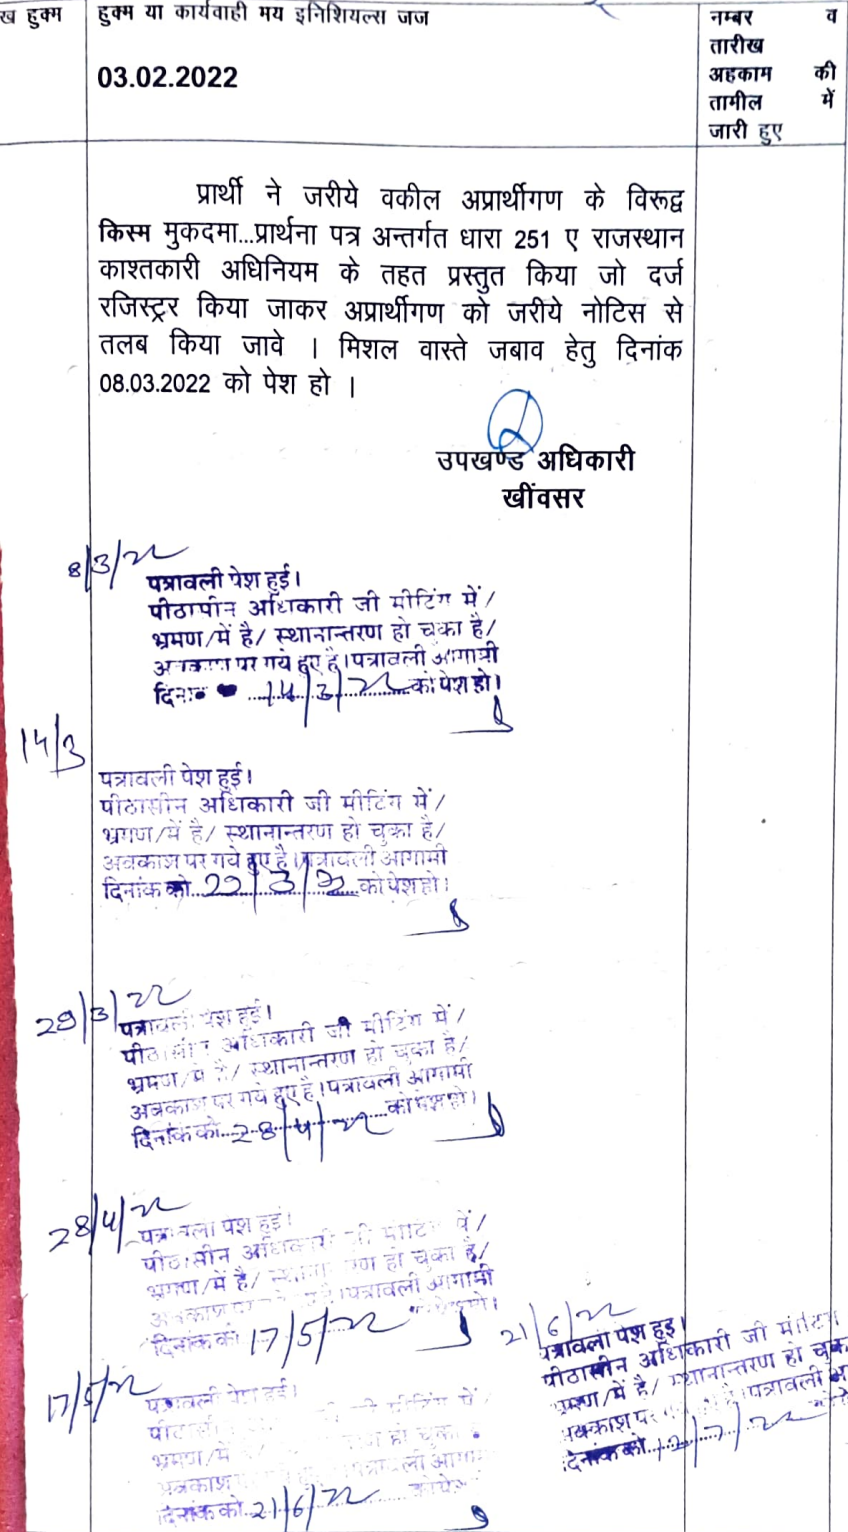 ख हुक्म
हुक्म या कार्यवाही मय इनिशियल्स जज
03.02.2022
नम्बर व
तारीख
अहकाम की
तामील में
जारी हुए
प्रार्थी ने जरीये वकील अप्रार्थीगण के विरूद्ध
किस्म मुकदमा...प्रार्थना पत्र अन्तर्गत धारा 251 ए राजस्थान
काश्तकारी अधिनियम के तहत प्रस्तुत किया जो दर्ज
रजिस्ट्रर किया जाकर अप्रार्थीगण को जरीये नोटिस से
तलब किया जावे । मिशल वास्ते जबाव हेतु दिनांक
08.03.2022 को पेश हो ।
उपखण्ड अधिकारी
खींवसर
8/3/22
पत्रावली पेश हुई।
पीठासीन अधिकारी जी मीटिंग में/
भ्रमण/में है/ स्थानान्तरण हो चुका है/
अवकाश पर गये हुए है।पत्रावली आगामी
दिनांक ...14/3/22...को पेश हो।
14/3
पत्रावली पेश हुई।
पीठासीन अधिकारी जी मीटिंग में/
भ्रमण/में है/ स्थानान्तरण हो चुका है/
अवकाश पर गये हुए है।पत्रावली आगामी
दिनांक को...29/3/22...को पेश हो।
29/3/22
पत्रावली पेश हुई।
पीठासीन अधिकारी जी मीटिंग में/
भ्रमण/में है/ स्थानान्तरण हो चुका है/
अवकाश पर गये हुए है।पत्रावली आगामी
दिनांक को...28/4/22...को पेश हो।
28/4/22
पत्रावली पेश हुई।
पीठासीन अधिकारी जी मीटिंग में/
भ्रमण/में है/ हो चुका है/
अवकाश पर पत्रावली आगामी
दिनांक को 17/5/22
17/5/22
पत्रावली पेश हुई।
जी मीटिंग में/
भ्रमण/में हो चुका
अवकाश पत्रावली
दिनांक को 21/6/22
21/6/22
पत्रावली पेश हुई।
पीठासीन अधिकारी जी मीटिंग
भ्रमण/में है/ स्थानान्तरण हो चुका
अवकाश पर पत्रावली
दिनांक को 12/7/22